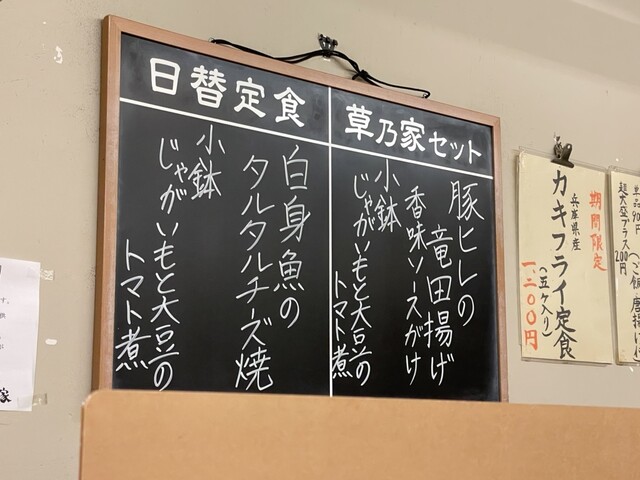 日替定食
白身魚の
タルタルチーズ焼
小鉢
じゃがいもと大豆の
トマト煮
草乃家セット
豚ヒレの
竜田揚げ
香味ソースがけ
小鉢
じゃがいもと大豆の
トマト煮
期間限定
兵庫県産
カキフライ定食
(五ケ入り)
一、二〇〇円
超大盛プラス200円
家